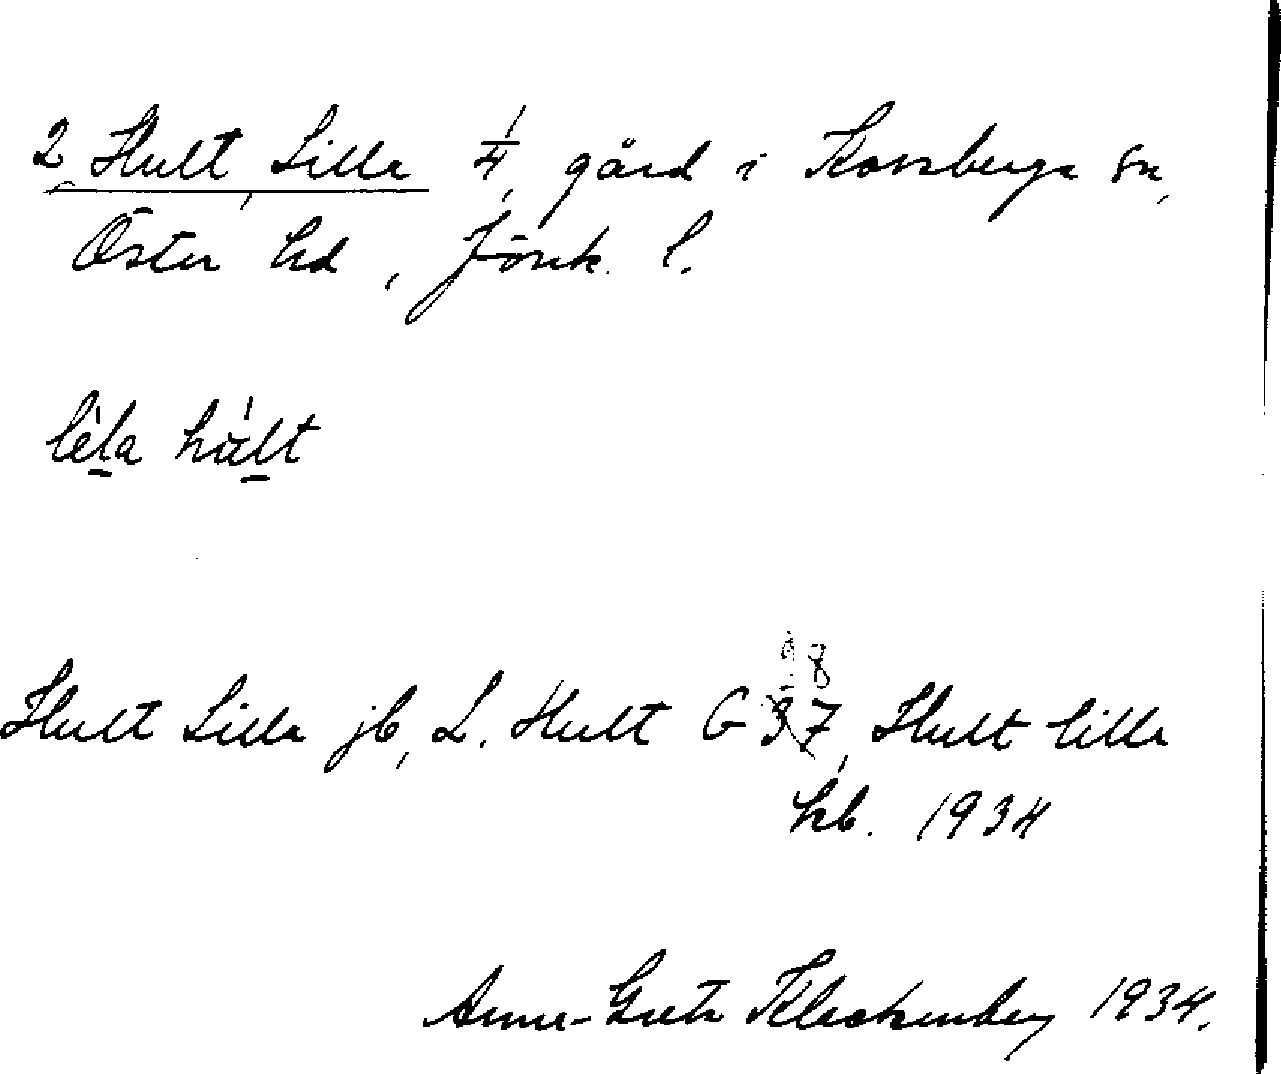 2 Hult, Lilla 1/4, gård i Korsberga sn,
Öster hd, Jönk. l.
lela hult
Hult Lilla jb, L. Hult G 37, Hult lilla
8
hb. 1934
Anna-Greta Kleckenberg 1934.